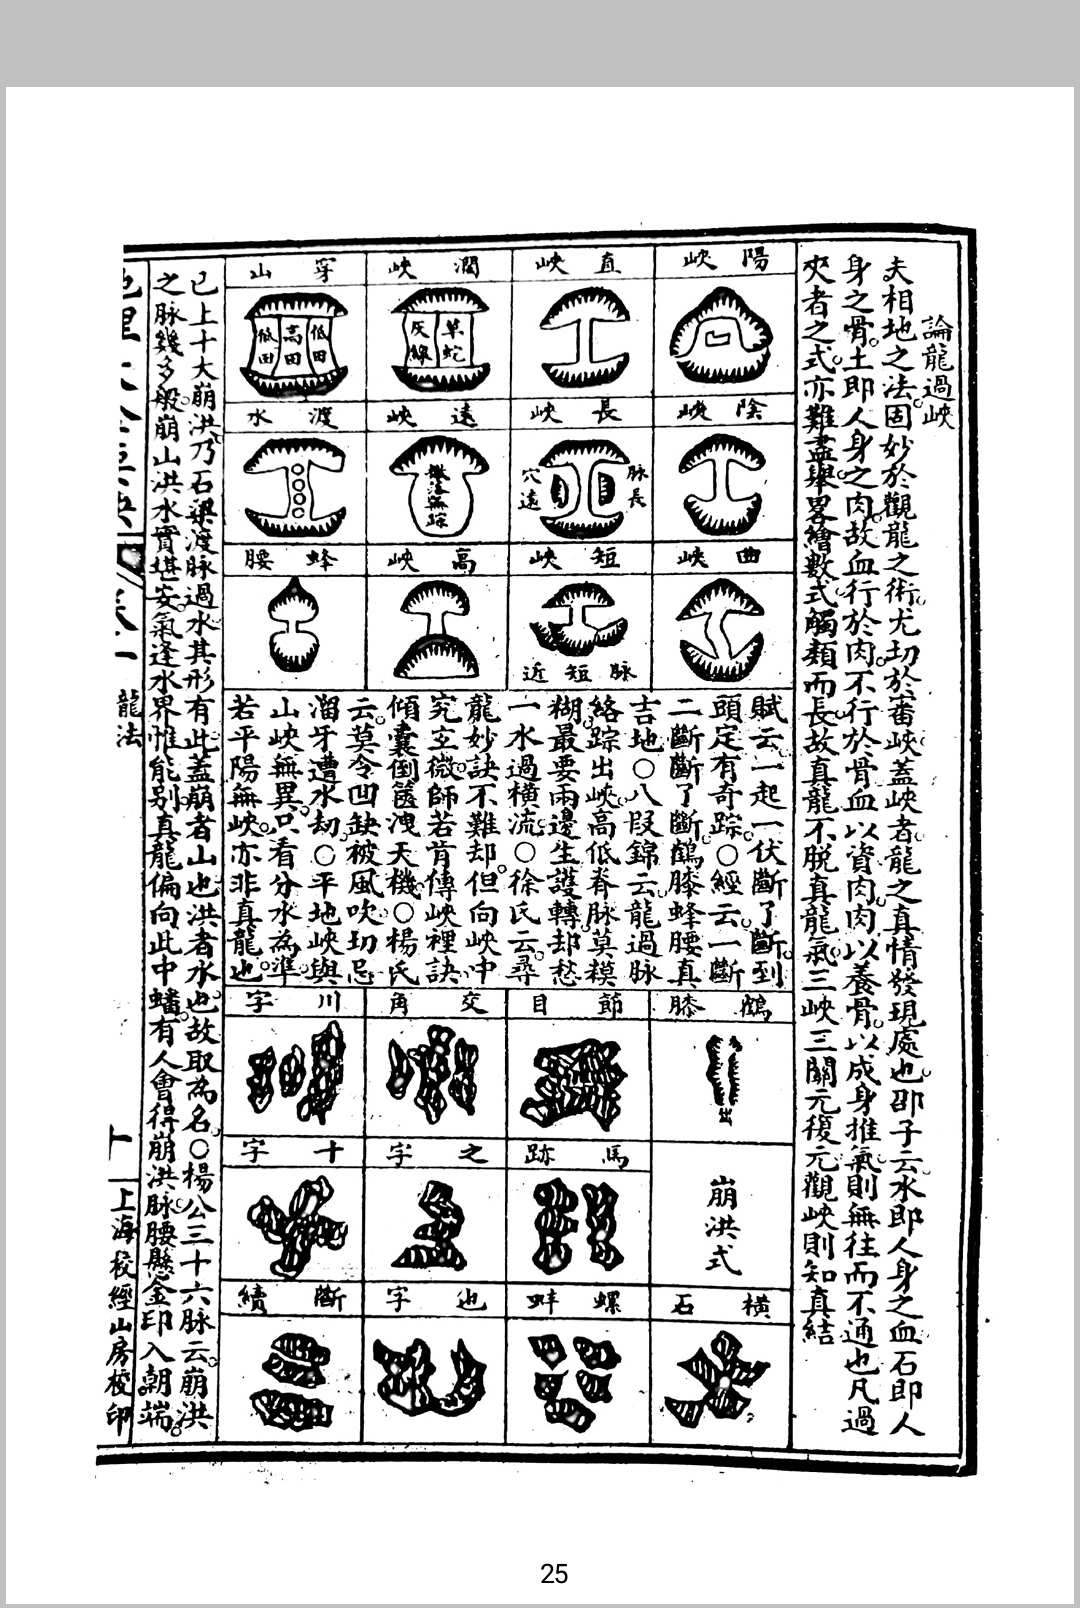 論龍過峽
夫相地之法固妙於觀龍之術尤切於審峽蓋峽者龍之真情發現處也邵子云水即人身之血石即人
身之骨土即人身之肉故血行於肉不行於骨血以資肉肉以養骨以成身推氣則無往而不通也凡過
夾者之式亦難盡舉畧繪數式觸類而長故真龍不脱真龍氣三峽三關元復元觀峽則知真結
陽峽
直峽
濶峽
穿山
草蛇
灰線
低田
高田
低田
陰峽
長峽
遠峽
渡水
脉長
穴遠
曲峽
短峽
高峽
蜂腰
脉短近
賦云一起一伏斷了斷到
頭定有奇踪○經云一斷
二斷斷了斷鶴膝蜂腰真
吉地○八段錦云龍過脉
絡踪出峽高低脊脉莫模
糊最要兩邊生護轉却愁
一水過橫流○徐氏云尋
龍妙訣不難却但向峽中
究玄微師若肯傳峽裡訣
傾囊倒篋洩天機○楊氏
云莫令凹缺被風吹切忌
溜牙遭水刼○平地峽與
山峽無異只看分水為準
若平陽無峽亦非真龍也
鶴膝
節目
交角
川字
出
崩洪式
馬跡
之字
十字
橫石
螺蚌
也字
斷續
已上十大崩洪乃石梁渡脉過水其形有此蓋崩者山也洪者水也故取為名○楊公三十六脉云崩洪
之脉幾多般崩山洪水實堪安氣逢水界惟能别真龍偏向此中蟠有人會得崩洪脉腰懸金印入朝端
龍法
上海校經山房校印
25